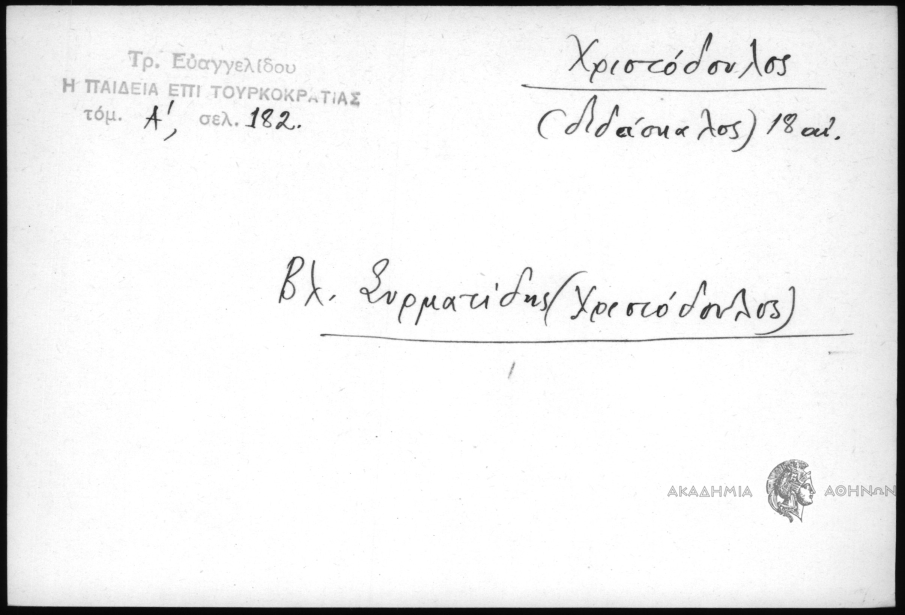 Τρ. Εὐαγγελίδου
Η ΠΑΙΔΕΙΑ ΕΠΙ ΤΟΥΡΚΟΚΡΑΤΙΑΣ
τόμ. Α', σελ. 182.
Χριστόδουλος
(διδάσκαλος) 18 αἰ.
Βλ. Συρματίδης (Χριστόδουλος)
ΑΚΑΔΗΜΙΑ ΑΘΗΝΩΝ